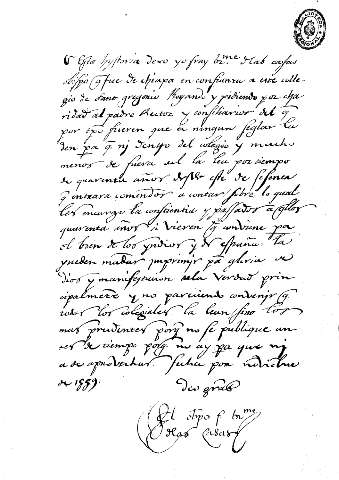 Esta hystoria dexo yo fray bar.me de las casas
obispo q fue de chiapa en confiança a este colle-
gio de sanct gregorio Rogando y pidiendo por cha-
ridad al padre Rector y consiliarios del q
por tpo fueren que a ningun seglar la
den pa q ni dentro del colegio y mucho
menos de fuera del la lea por tiempo
de quarenta años desde este de sesenta
q entrara comiendo a contar sobre lo qual
les encargo la consciencia y passados aqllos
quarenta años si vieren q conviene pa
el bien de los yndios y de españa la
pueden mandar imprimir pa gloria de
dios y manifestacion de la verdad prin-
cipalmente y no pareciendo convenir q
todos los colegiales la lean sino los
mas prudentes porq no se publique an-
tes de tiempo porq no ay pa que ni
a de aprovechar fecha por noviembre
de 1559.
deo gratias
El obpo fr bar.me
de las Casas